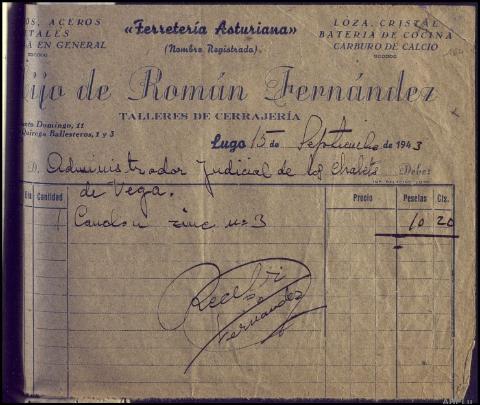 OS, ACEROS
TALES
A EN GENERAL
«Ferretería Asturiana»
(Nombre Registrado)
LOZA, CRISTAL
BATERIA DE COCINA
CARBURO DE CALCIO
ijo de Román Fernández
TALLERES DE CERRAJERÍA
nto Domingo, 11
Quiroga Ballesteros, 1 y 3
Lugo 15 de Septiembre de 1943
D. Administrador Judicial de los Chalets Debe:
de Vega.
Día Cantidad Precio Pesetas Cts.
1 zinc nº 3 10 20
Recibí
Fernández